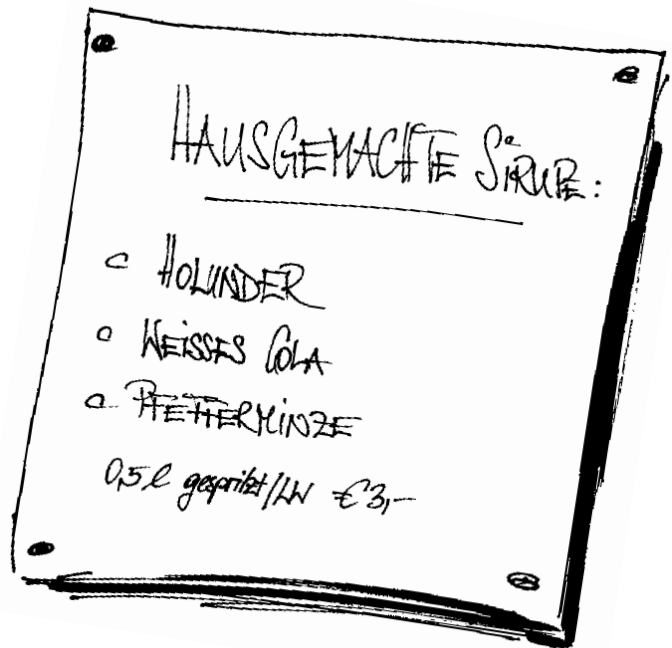 HAUSGEMACHTE SIRUPE:
HOLUNDER
WEISSES COLA
PFEFFERMINZE
0,5 l gespritzt/LW €3,-